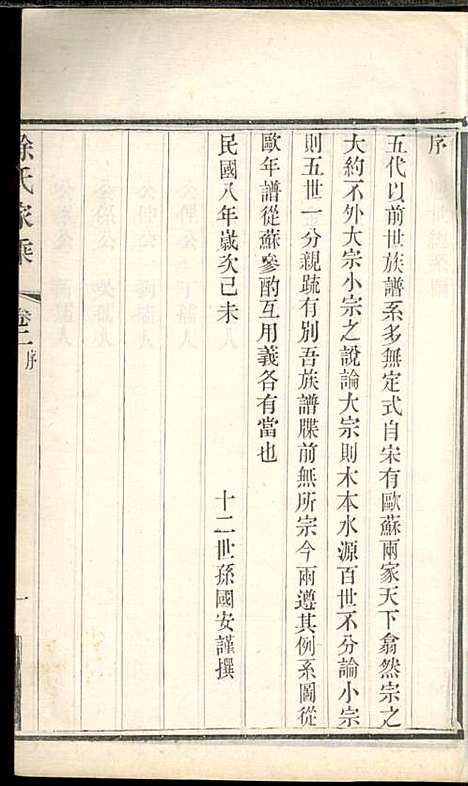 序
五代以前世族譜系多無定式自宋有歐蘇兩家天下翕然宗之
大約不外大宗小宗之說論大宗則木本水源百世不分論小宗
則五世一分親疏有別吾族譜牒前無所宗今兩遵其例系圖從
歐年譜從蘇參酌互用義各有當也
民國八年歲次己未
十二世孫國安謹撰
徐氏家乘
卷二
序
一